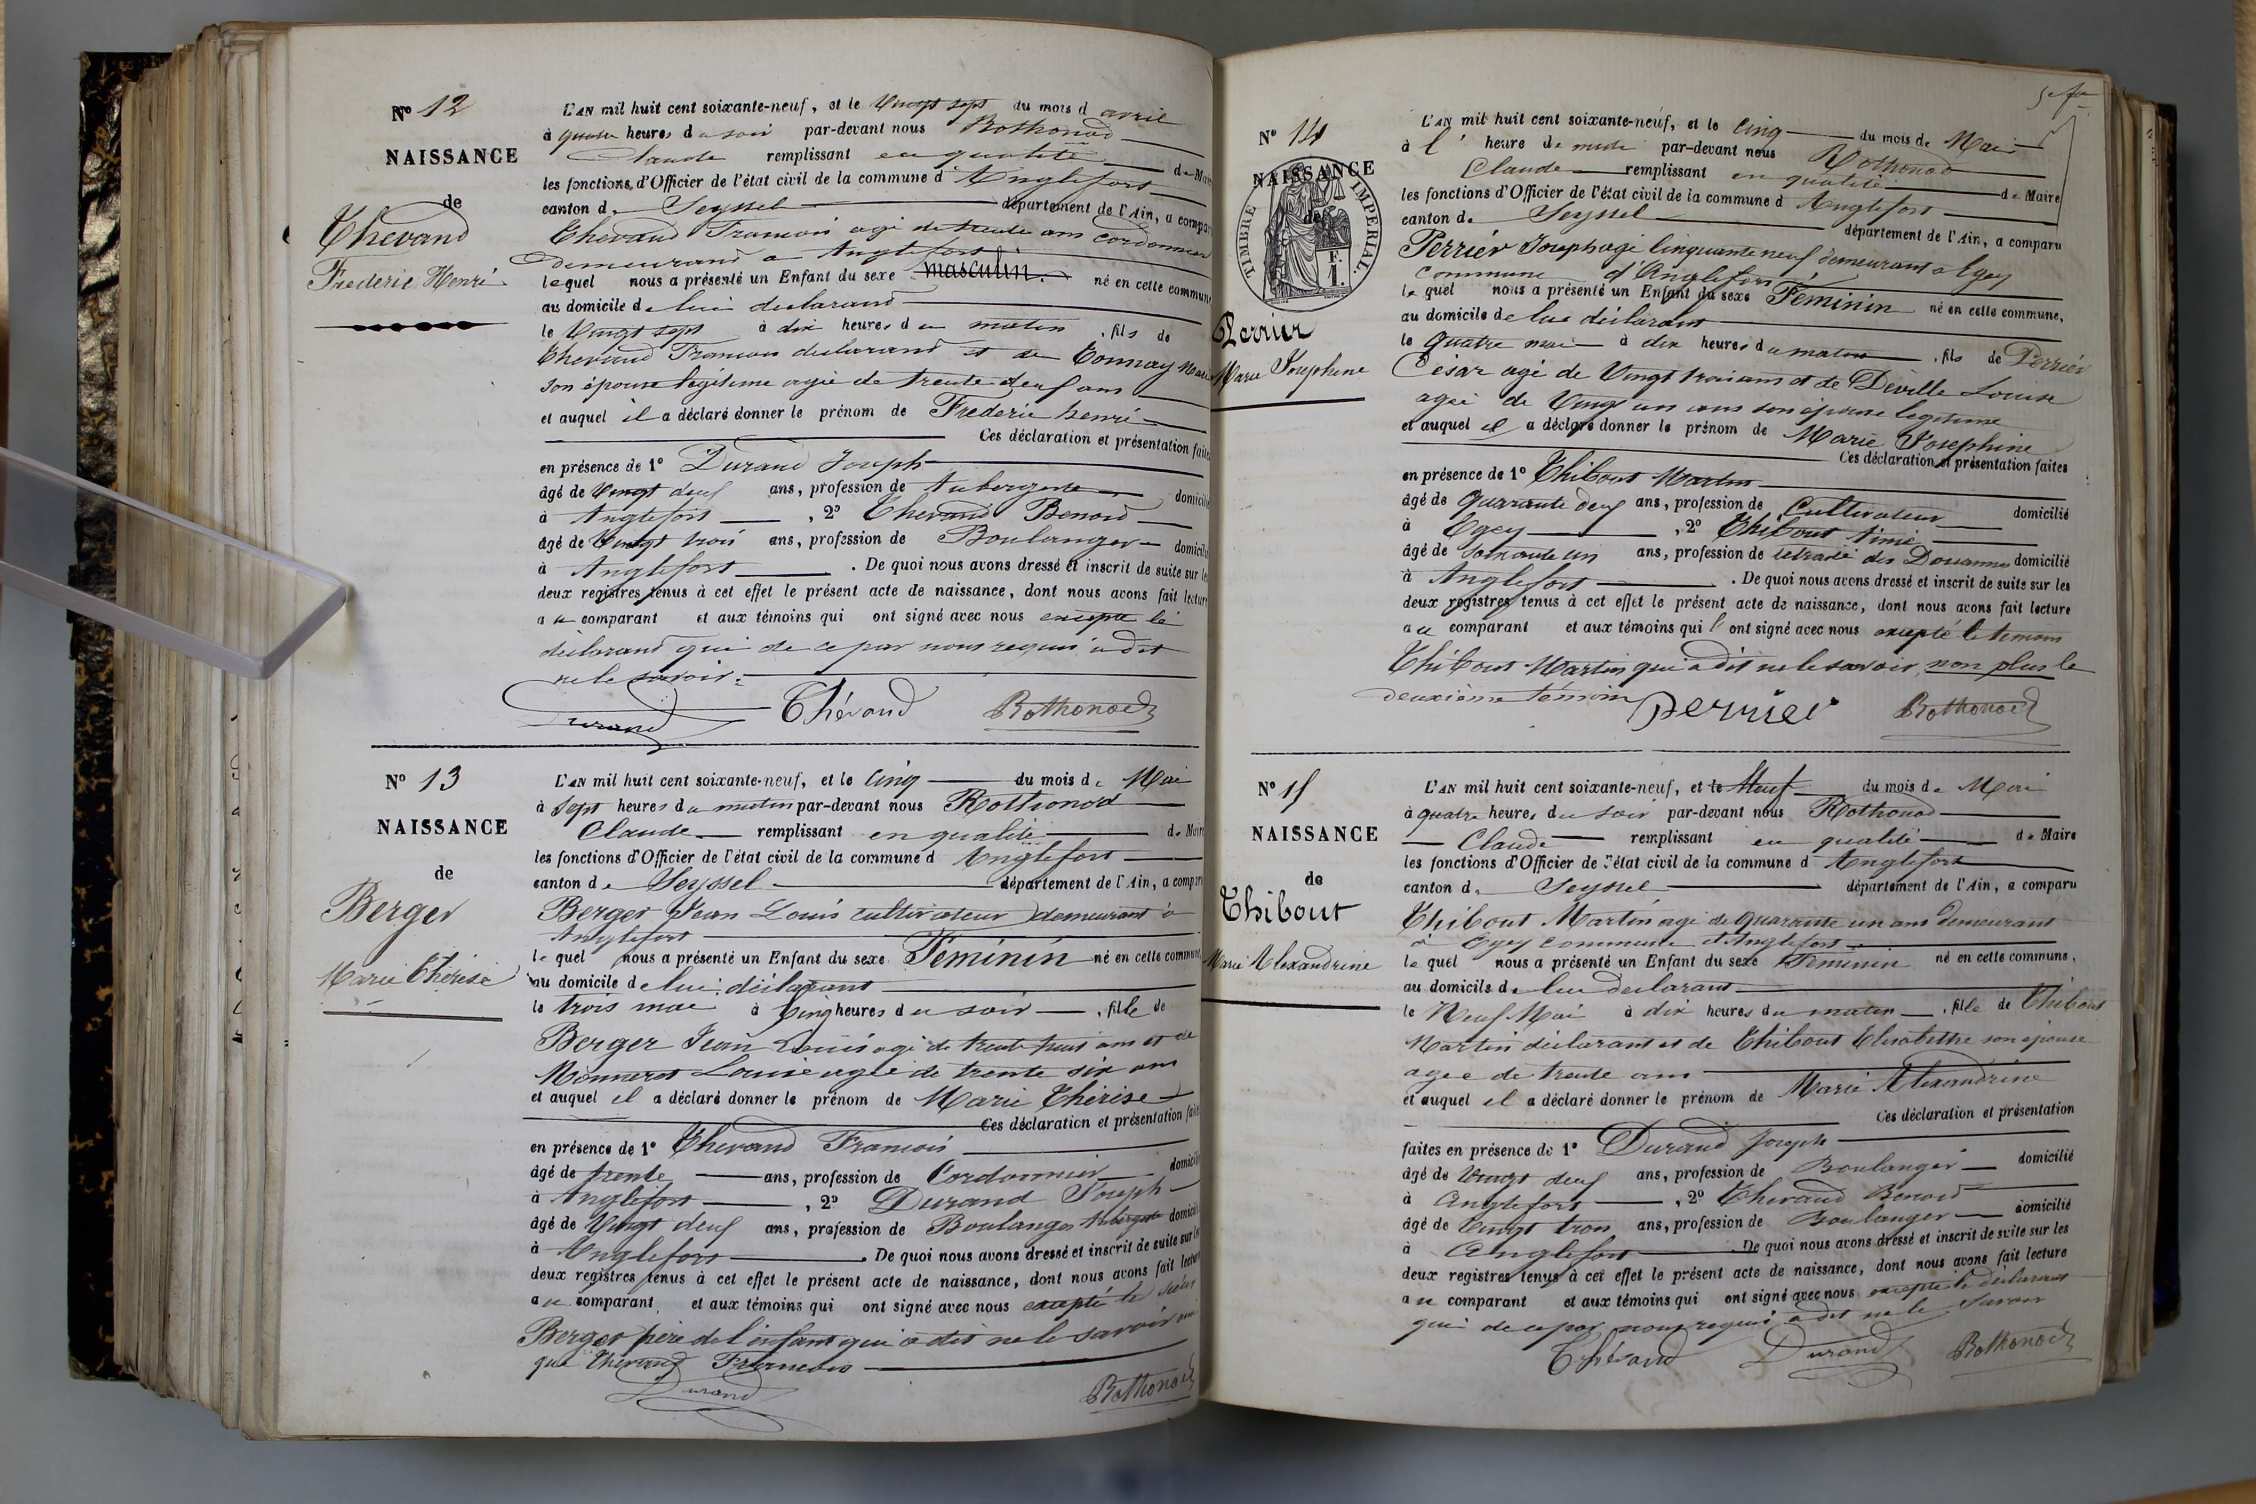 Nº 12
NAISSANCE
de
Thevand
Frederic Henri
L'AN mil huit cent soixante-neuf, et le Vingt sept du mois d avril
à quatre heures du soir par-devant nous Rothonod
Claude remplissant en qualité de Maire
les fonctions d'Officier de l'état civil de la commune d Anglefort
canton de Seyssel département de l'Ain, a comparu
Thevand Francois agé de trente ans cordonnier
demeurand a Anglefort
lequel nous a présenté un Enfant du sexe masculin né en cette commune
au domicile de lui declarand
le Vingt sept à dix heures du matin, fils de
Thevand Francois declarand et de Marie
son épouse legitime agée de trente deux ans
et auquel il a déclaré donner le prénom de Frederic henri
Ces déclaration et présentation faites
en présence de 1º Durand Joseph
âgé de Vingt deux ans, profession de Aubergiste domicilié
à Anglefort, 2º Thevand Benoid
âgé de Vingt trois ans, profession de Boulanger domicilié
à Anglefort. De quoi nous avons dressé et inscrit de suite sur les
deux registres tenus à cet effet le présent acte de naissance, dont nous avons fait lecture
au comparant et aux témoins qui ont signé avec nous excepté le
déclarand qui de ce par nous requis a dit
ne le savoir.
Durand Thévand Rothonod
Nº 13
NAISSANCE
de
Berger
Marie Thérèse
L'AN mil huit cent soixante-neuf, et le Cinq du mois de Mai
à Sept heures du matin par-devant nous Rothonod
Claude remplissant en qualité de Maire
les fonctions d'Officier de l'état civil de la commune d Anglefort
canton de Seyssel département de l'Ain, a comparu
Berger Jean Louis cultivateur demeurant à
Anglefort
le quel nous a présenté un Enfant du sexe Féminin né en cette commune,
au domicile de lui déclarant
le trois mai à Cinq heures du soir, fille de
Berger Jean Louis agé de trente huit ans et de
Monneret Louise agée de trente six ans
et auquel il a déclaré donner le prénom de Marie Thérèse
Ces déclaration et présentation faites
en présence de 1º Thevand Francois
âgé de trente ans, profession de Cordonnier domicilié
à Anglefort, 2º Durand Joseph
âgé de Vingt deux ans, profession de Boulanger Aubergiste domicilié
à Anglefort. De quoi nous avons dressé et inscrit de suite sur les
deux registres tenus à cet effet le présent acte de naissance, dont nous avons fait lecture
au comparant et aux témoins qui ont signé avec nous excepté le sieur
Berger père de l'enfant qui a dit ne le savoir
que Thevand Francois
Durand Rothonod
Nº 14
NAISSANCE
de
TIMBRE IMPERIAL.
F. 1.
Perrier
Marie Josephine
L'AN mil huit cent soixante-neuf, et le Cinq du mois de Mai
à l' heure de midi par-devant nous Rothonod
Claude remplissant en qualité de Maire
les fonctions d'Officier de l'état civil de la commune d Anglefort
canton de Seyssel département de l'Ain, a comparu
Perrier Joseph agé Cinquante neuf demeurant a Egey
commune d'Anglefort
le quel nous a présenté un Enfant du sexe Féminin né en cette commune,
au domicile de lui déclarant
le quatre mai à dix heures du matin, fils de Perrier
César agé de Vingt trois ans et de Deville Louise
agée de Vingt un ans son épouse legitime
et auquel il a déclaré donner le prénom de Marie Josephine
Ces déclaration et présentation faites
en présence de 1º Thibout Martin
âgé de Quarante deux ans, profession de Cultivateur domicilié
à Egey, 2º Thibout Aimé
âgé de Soixante un ans, profession de retraité des Douannes domicilié
à Anglefort. De quoi nous avons dressé et inscrit de suite sur les
deux registres tenus à cet effet le présent acte de naissance, dont nous avons fait lecture
au comparant et aux témoins qui l' ont signé avec nous excepté le temoin
Thibout Martin qui a dit ne le savoir, non plus le
deuxième témoin
Perrier Rothonod
Nº 15
NAISSANCE
de
Thibout
Marie Alexandrine
L'AN mil huit cent soixante-neuf, et le Neuf du mois de Mai
à quatre heures du soir par-devant nous Rothonod
Claude remplissant en qualité de Maire
les fonctions d'Officier de l'état civil de la commune d Anglefort
canton de Seyssel département de l'Ain, a comparu
Thibout Martin agé de quarante un ans demeurant
à Egey commune d'Anglefort
le quel nous a présenté un Enfant du sexe Feminin né en cette commune,
au domicile de lui declarant
le Neuf Mai à dix heures du matin, fille de Thibout
Martin déclarant et de Thibout Elisabethe son épouse
agee de trente ans
et auquel il a déclaré donner le prénom de Marie Alexandrine
Ces déclaration et présentation
faites en présence de 1º Durand Joseph
âgé de Vingt deux ans, profession de Boulanger domicilié
à Anglefort, 2º Thevand Benoid
âgé de Vingt trois ans, profession de Boulanger domicilié
à Anglefort De quoi nous avons dressé et inscrit de suite sur les
deux registres tenus à cet effet le présent acte de naissance, dont nous avons fait lecture
au comparant et aux témoins qui ont signé avec nous excepté le declarant
qui de ce par nous requis a dit ne le savoir
Thévand Durand Rothonod